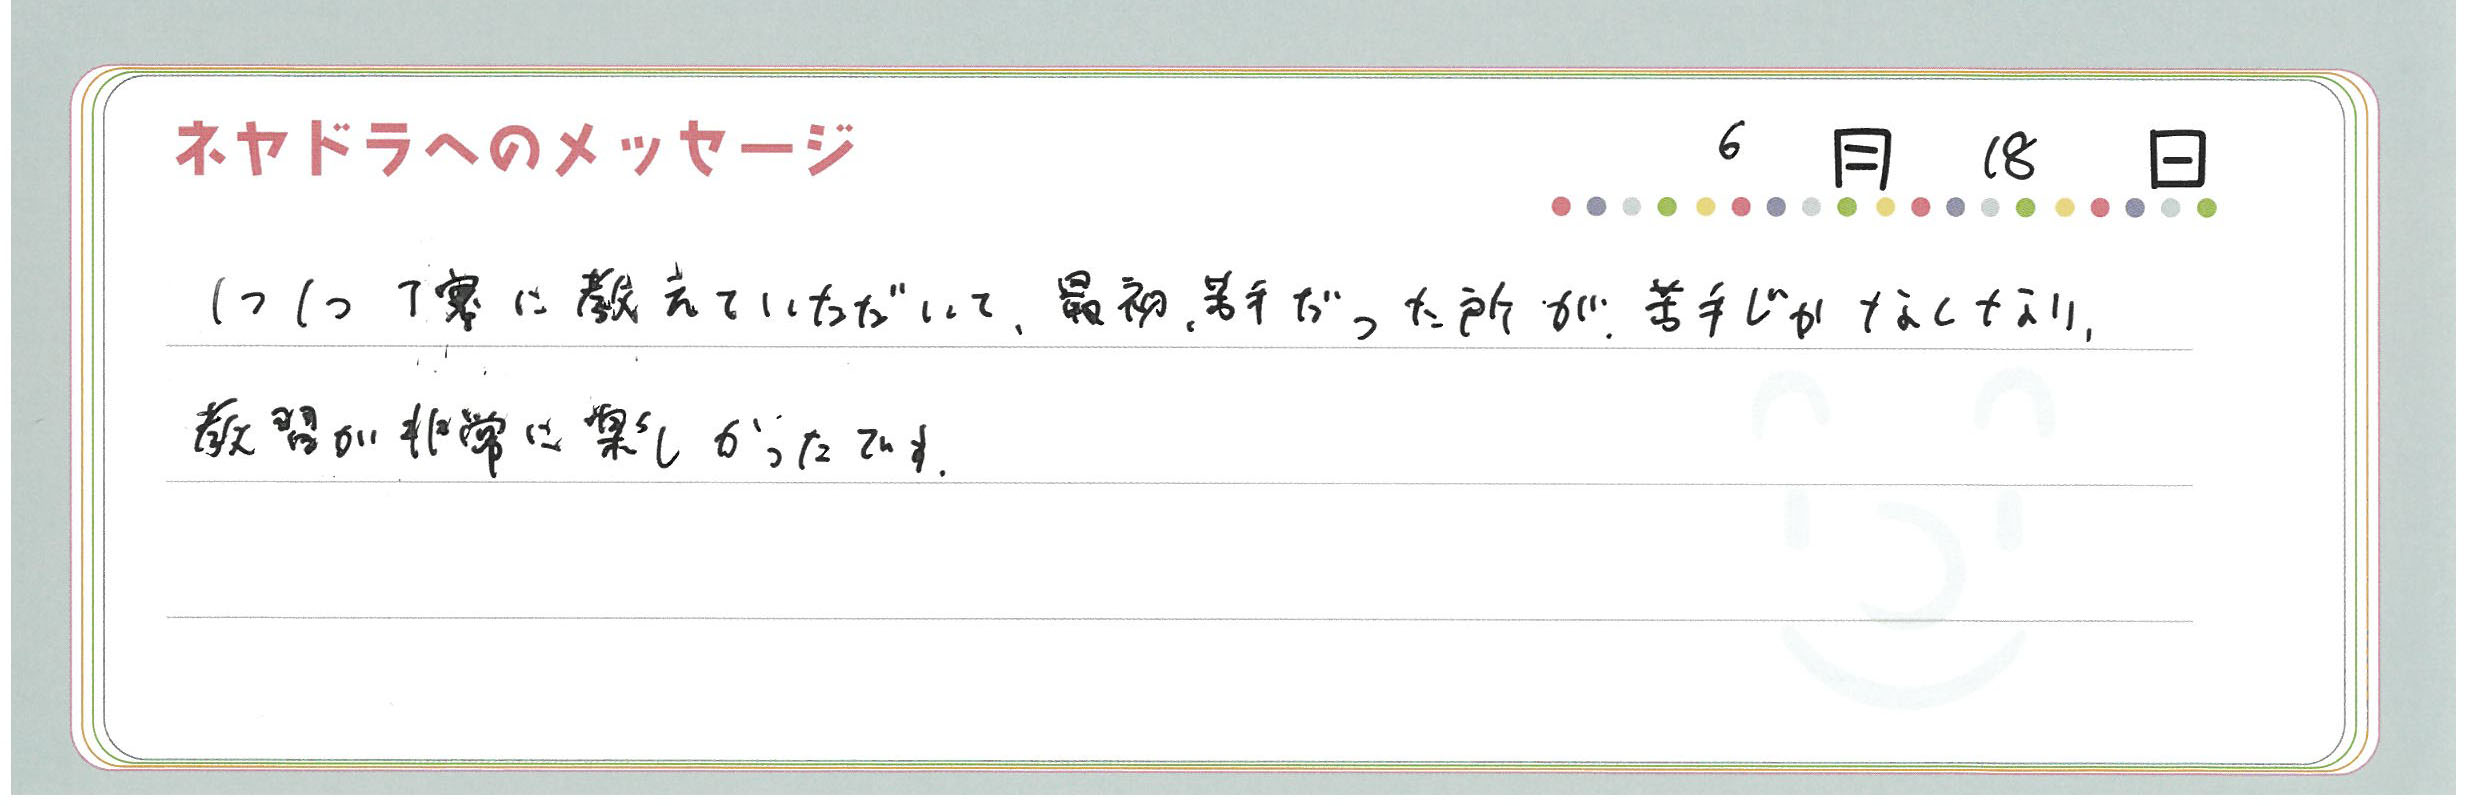 ネヤドラへのメッセージ
6月18日
1つ1つ丁寧に教えていただいて、最初、苦手だった所が、苦手じがなくなり、
教習が非常に楽しかったです。